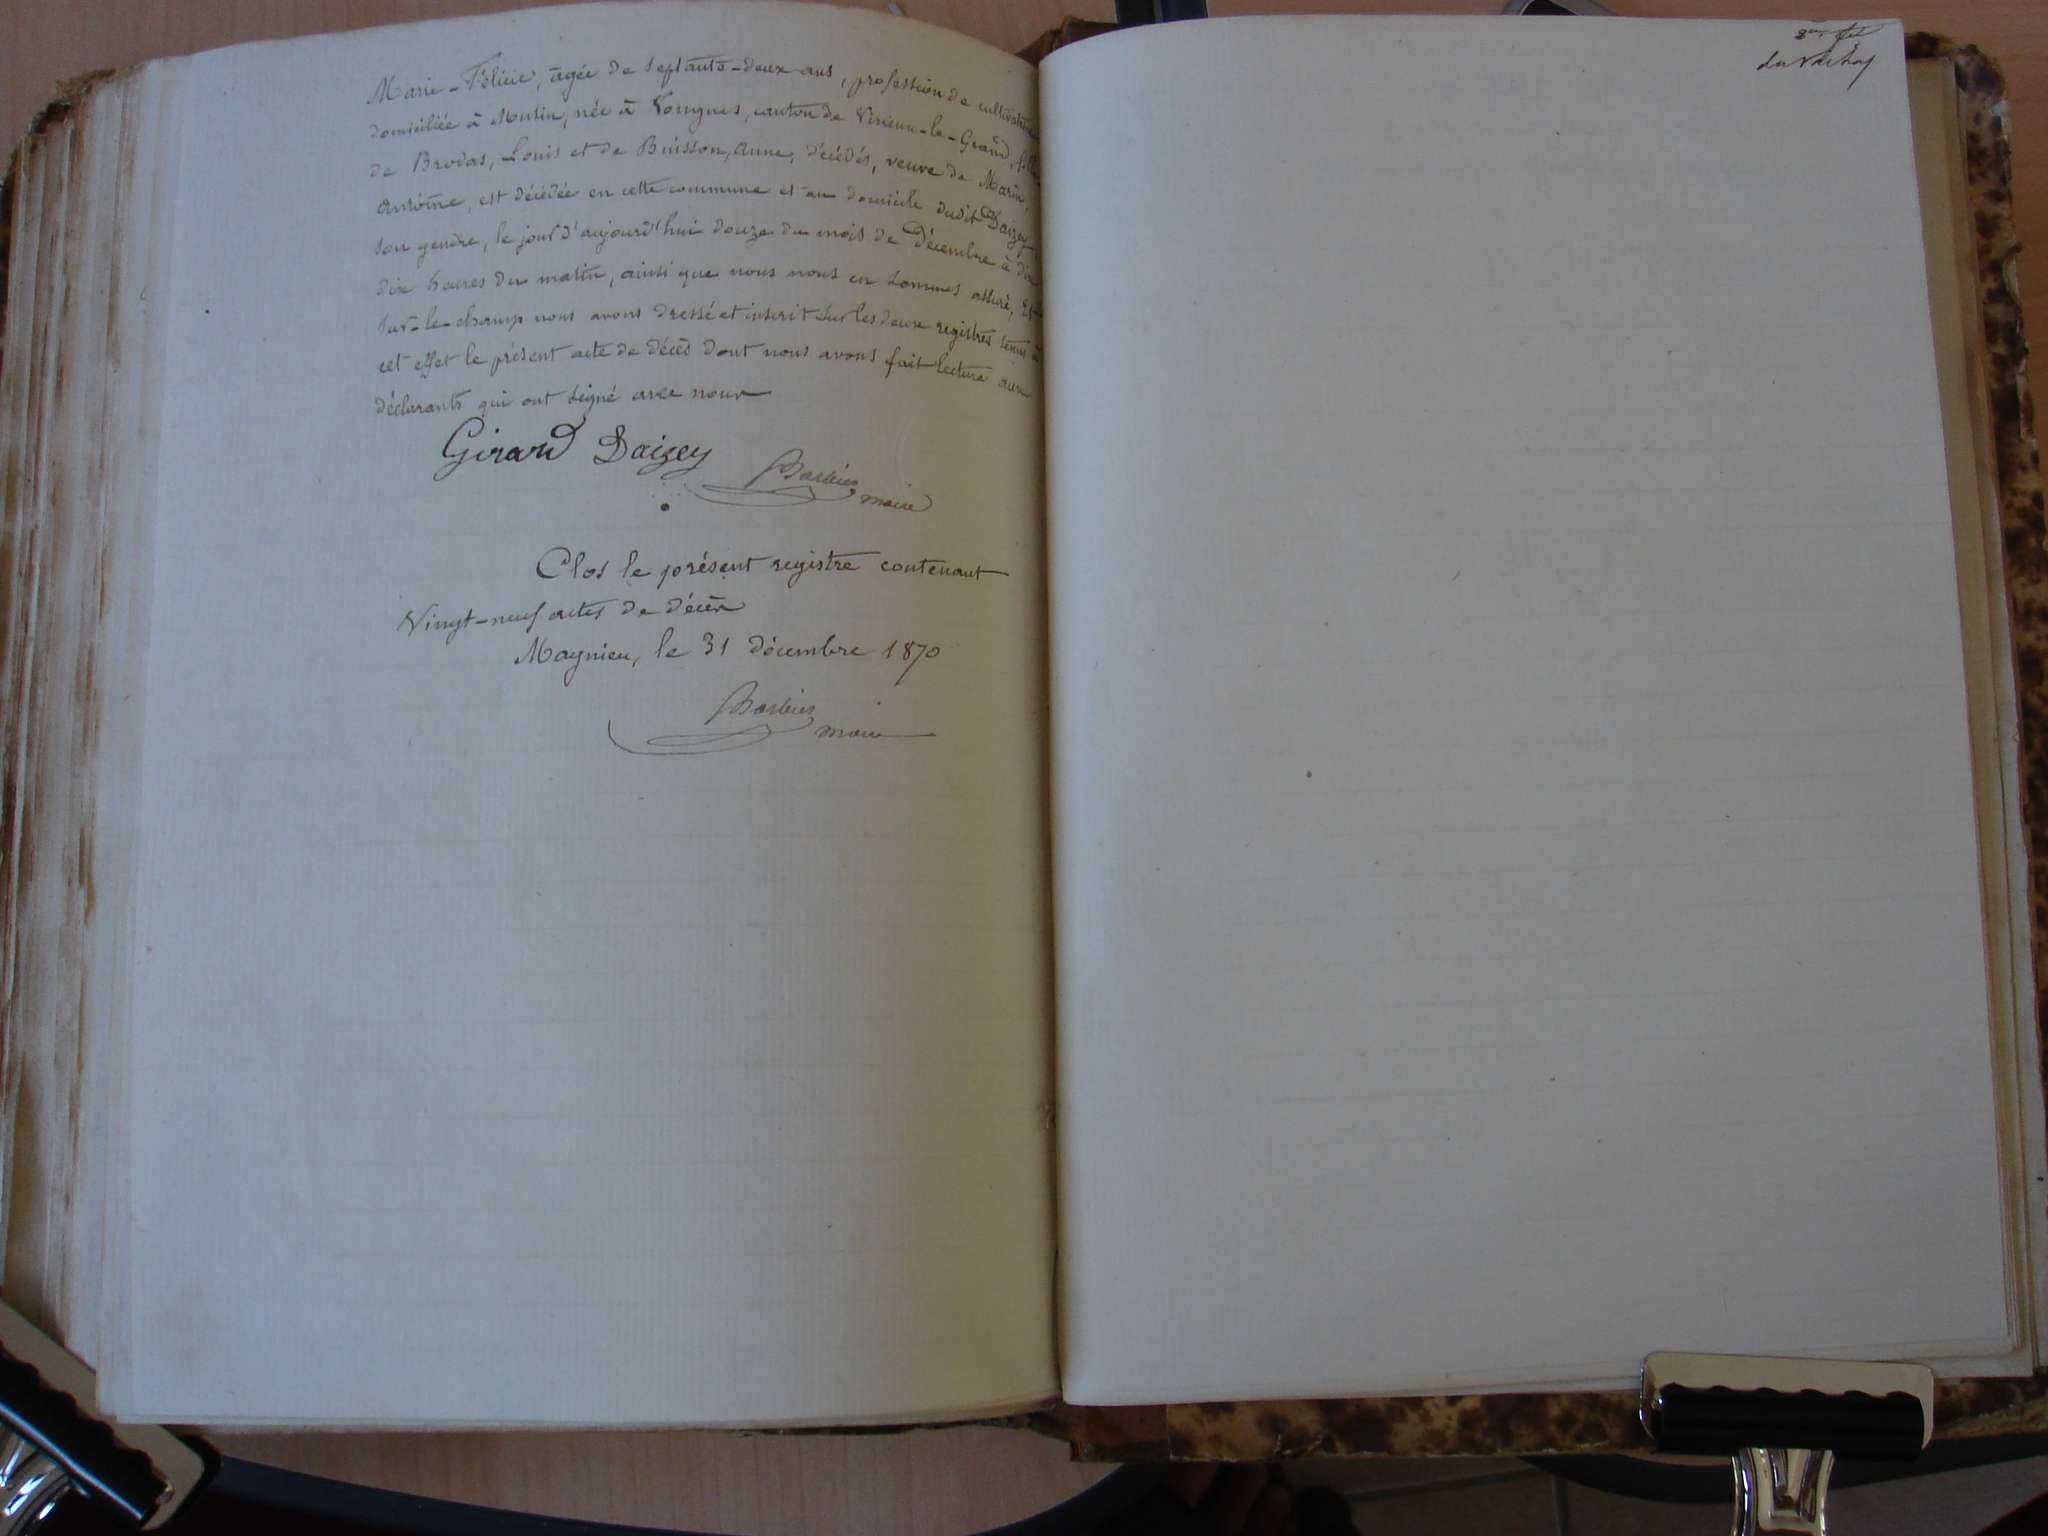 Marie-Félicie, âgée de septante-deux ans, profession de cultivatrice
domiciliée à Musin, née à Vongnes, canton de Virieu-le-Grand, fille
de Brodas, Louis et de Buisson, Anne, décédés, veuve de Marin,
Antoine, est décédée en cette commune et au domicile dudit Daizey,
son gendre, le jour d'aujourd'hui douze du mois de Décembre à dix
dix heures du matin, ainsi que nous nous en sommes assuré, Et
sur-le-champ nous avons dressé et inscrit sur les deux registres tenus à
cet effet le présent acte de décès dont nous avons fait lecture aux
déclarants qui ont signé avec nous
Girard Daizey Barbier
maire
Clos le présent registre contenant
Vingt-neuf actes de décès
Magnieu, le 31 décembre 1870
Barbier
maire